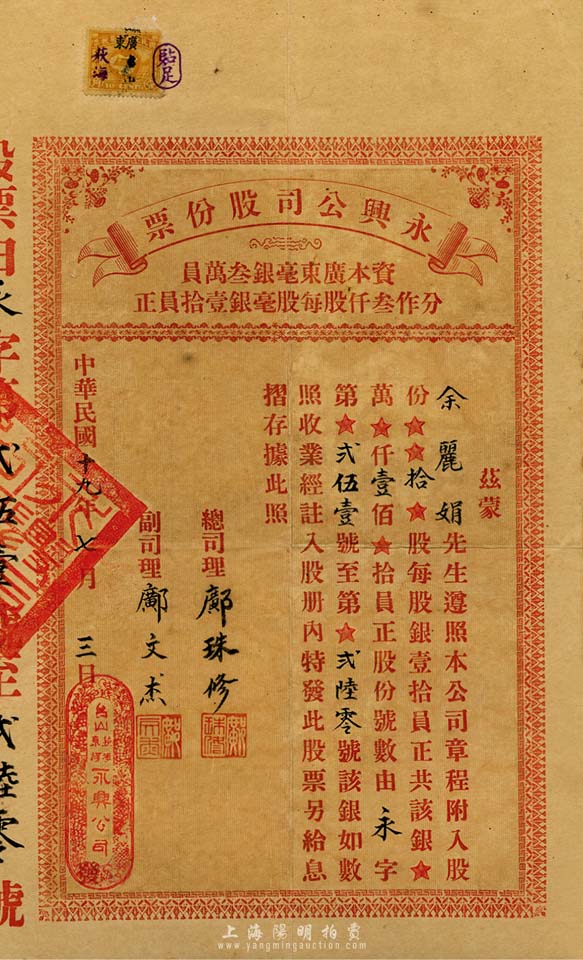 廣東
荻海
貼足
永興公司股份票
資本廣東毫銀叁萬員
分作叁仟股每股毫銀壹拾員正
茲蒙
余麗娟先生遵照本公司章程附入股
份★★拾★股每股銀壹拾員正共該銀★
萬★仟壹佰★拾員正股份號數由永字
第★弍伍壹號至第★弍陸零號該銀如數
照收業經註入股册內特發此股票另給息
摺存據此照
總司理 鄺珠修
副司理 鄺文杰
中華民國十九年七月三日
台山
永興公司
股票由永字第弍伍壹號至弍陸零號
上海陽明拍賣
www.yangmingauction.com